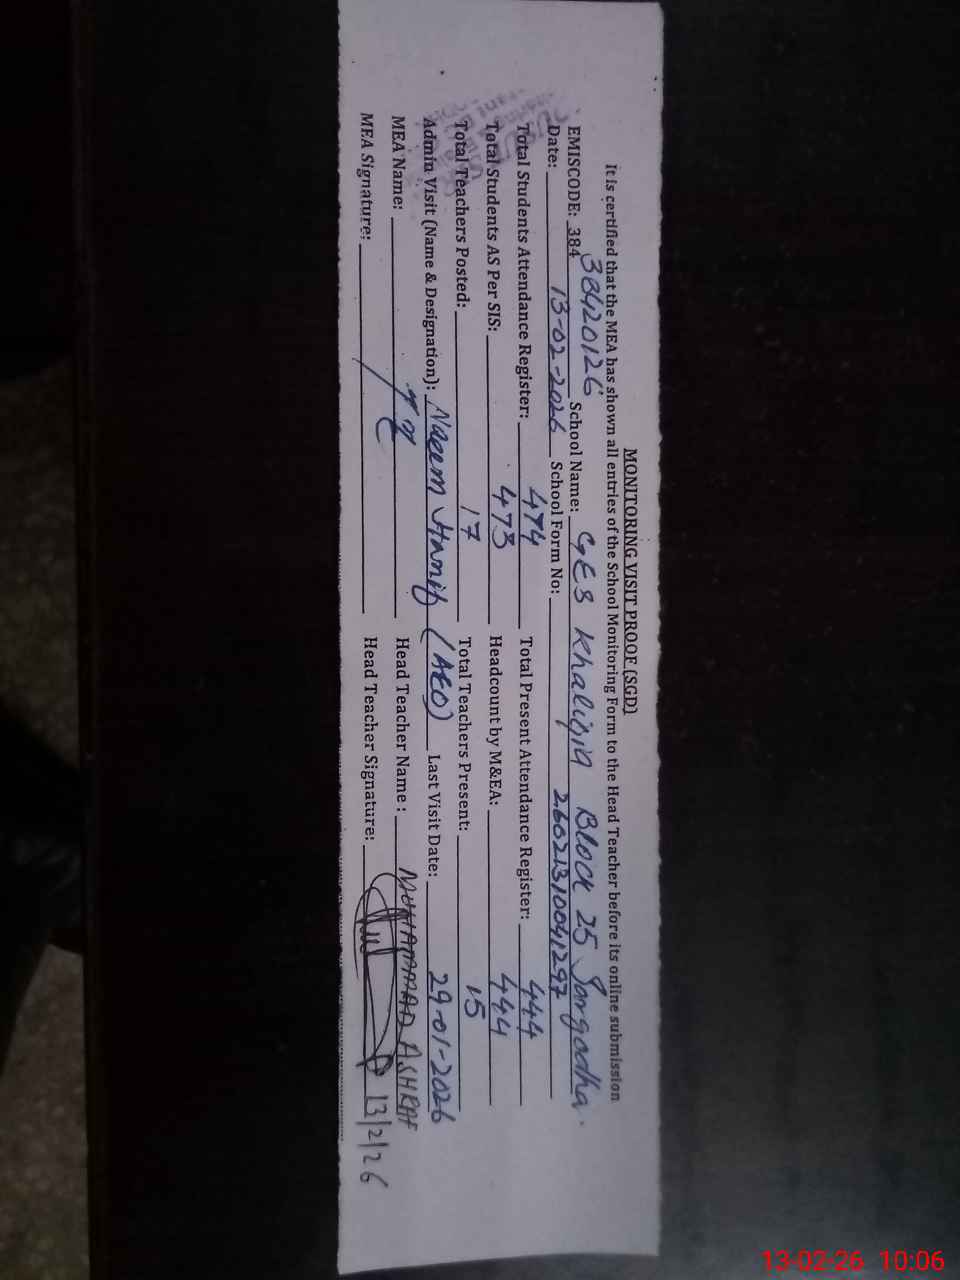 MONITORING VISIT PROOF (SGD)
It is certified that the MEA has shown all entries of the School Monitoring Form to the Head Teacher before its online submission
EMISCODE: 384 38420126 School Name: GES Khaliqia Block 25 Sargodha.
Date: 13-02-2026 School Form No: 26021310041297
Total Students Attendance Register: 474 Total Present Attendance Register: 444
Total Students AS Per SIS: 473 Headcount by M&EA: 444
Total Teachers Posted: 17 Total Teachers Present: 15
Admin Visit (Name & Designation): Naeem Hanif (AEO) Last Visit Date: 29-01-2026
MEA Name: Head Teacher Name : MUHAMMAD ASHRAF
MEA Signature: Head Teacher Signature: 13/2/26
13-02-26 10:06